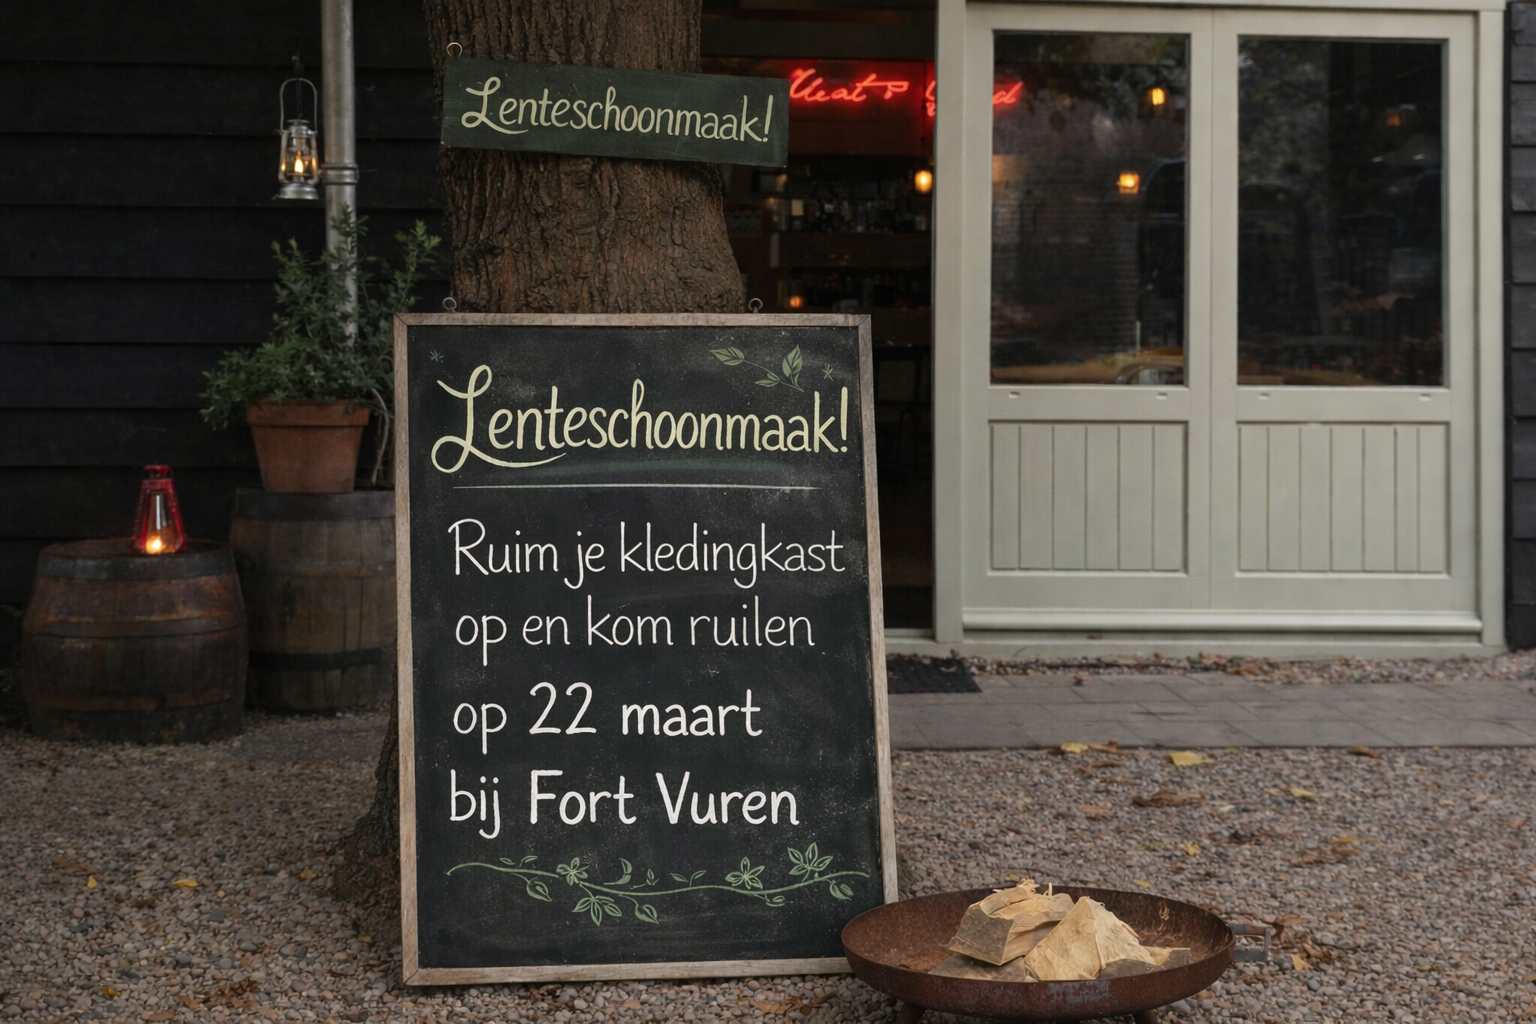 Lenteschoonmaak!
Meat &
Lenteschoonmaak!
Ruim je kledingkast
op en kom ruilen
op 22 maart
bij Fort Vuren